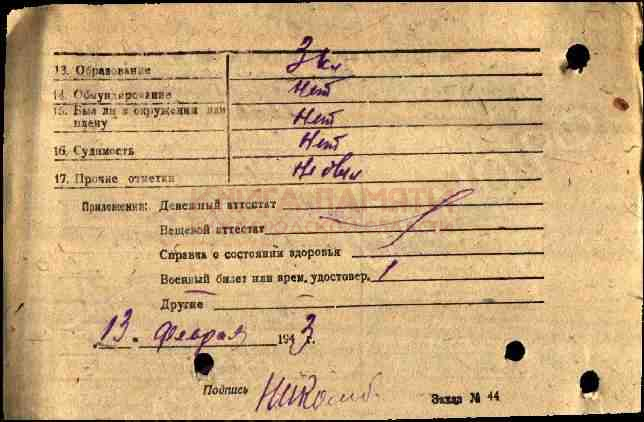 13. Образование 3 кл
14. Обмундирование Нет
15. Был ли в окружении или плену Нет
16. Судимость Нет
17. Прочие отметки Не был
Приложения: Денежный аттестат
Вещевой аттестат
Справка о состоянии здоровья
Военный билет или врем. удостовер. 1
Другие
13 февраля 1943 г.
Подпись
Заказ № 44